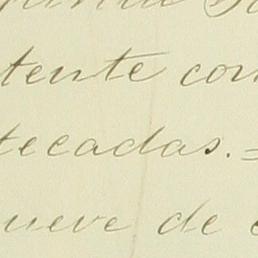 tente con
tecadas. =
ueve de